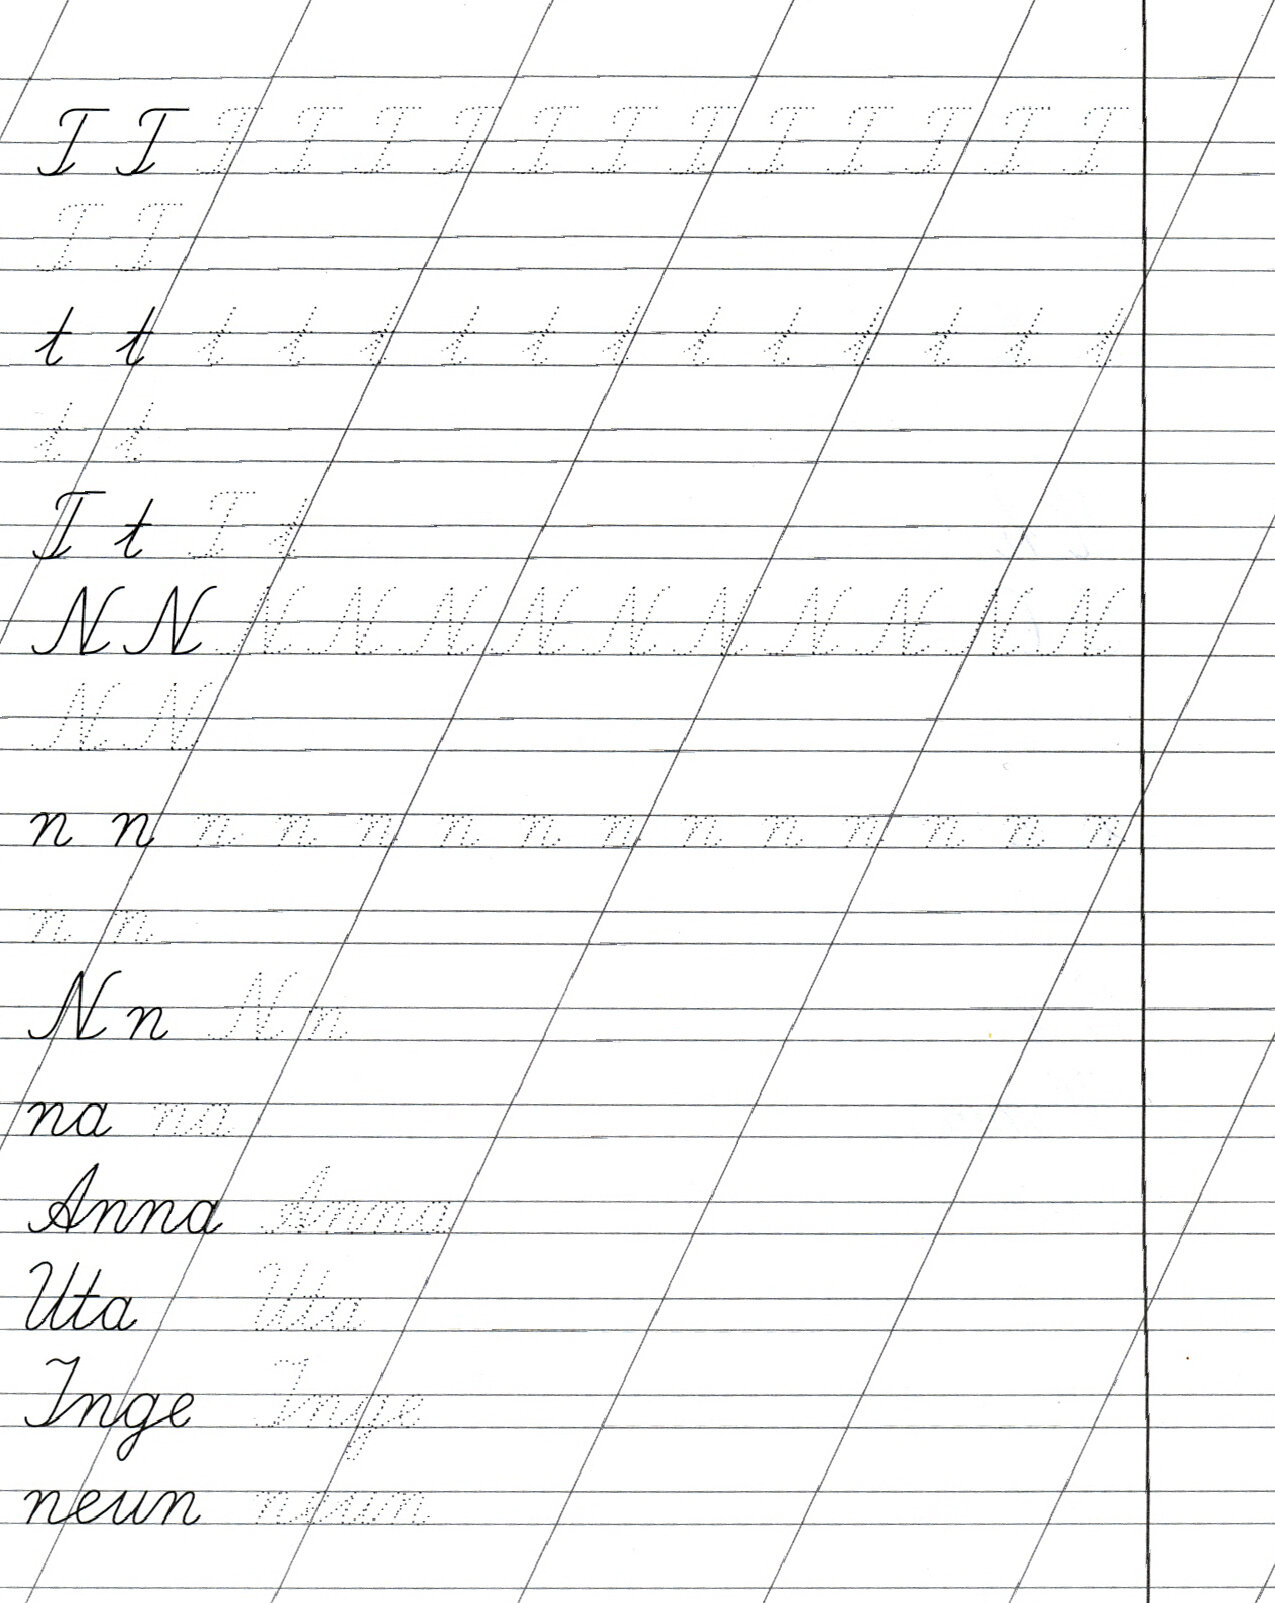 T T T T T T T T T T T T T T
T T
t t t t t t t t t t t t t t
t t
T t T t
N N N N N N N N N N N N
N N
n n n n n n n n n n n n n n
n n
N n N n
na na
Anna Anna
Uta Uta
Inge Inge
neun neun